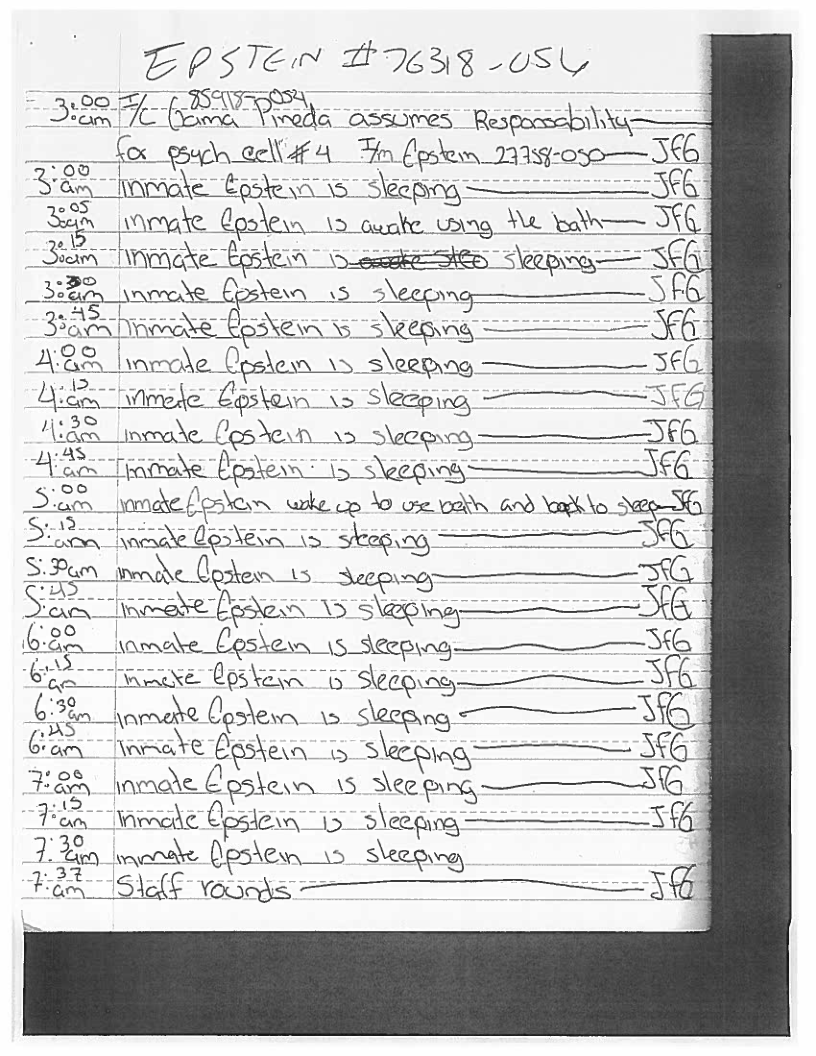 EPSTEIN #76318-054
3:00am I/C Gama 85918-054 Pineda assumes Responsability
for psych cell #4 I/m Epstein 27758-050 — JfG
3:00am inmate Epstein is sleeping — JfG
3:05am inmate Epstein is awake using the bath — JfG
3:15am inmate Epstein is sleeping — JfG
3:30am inmate Epstein is sleeping — JfG
3:45am inmate Epstein is sleeping — JfG
4:00am inmate Epstein is sleeping — JfG
4:15am inmate Epstein is sleeping — JfG
4:30am inmate Epstein is sleeping — JfG
4:45am inmate Epstein is sleeping — JfG
5:00am inmate Epstein wake up to use bath and back to sleep — JfG
5:15am inmate Epstein is sleeping — JfG
5:30am inmate Epstein is sleeping — JfG
5:45am inmate Epstein is sleeping — JfG
6:00am inmate Epstein is sleeping — JfG
6:15am inmate Epstein is sleeping — JfG
6:30am inmate Epstein is sleeping — JfG
6:45am inmate Epstein is sleeping — JfG
7:00am inmate Epstein is sleeping — JfG
7:15am inmate Epstein is sleeping — JfG
7:30am inmate Epstein is sleeping
7:37am Staff rounds — JfG